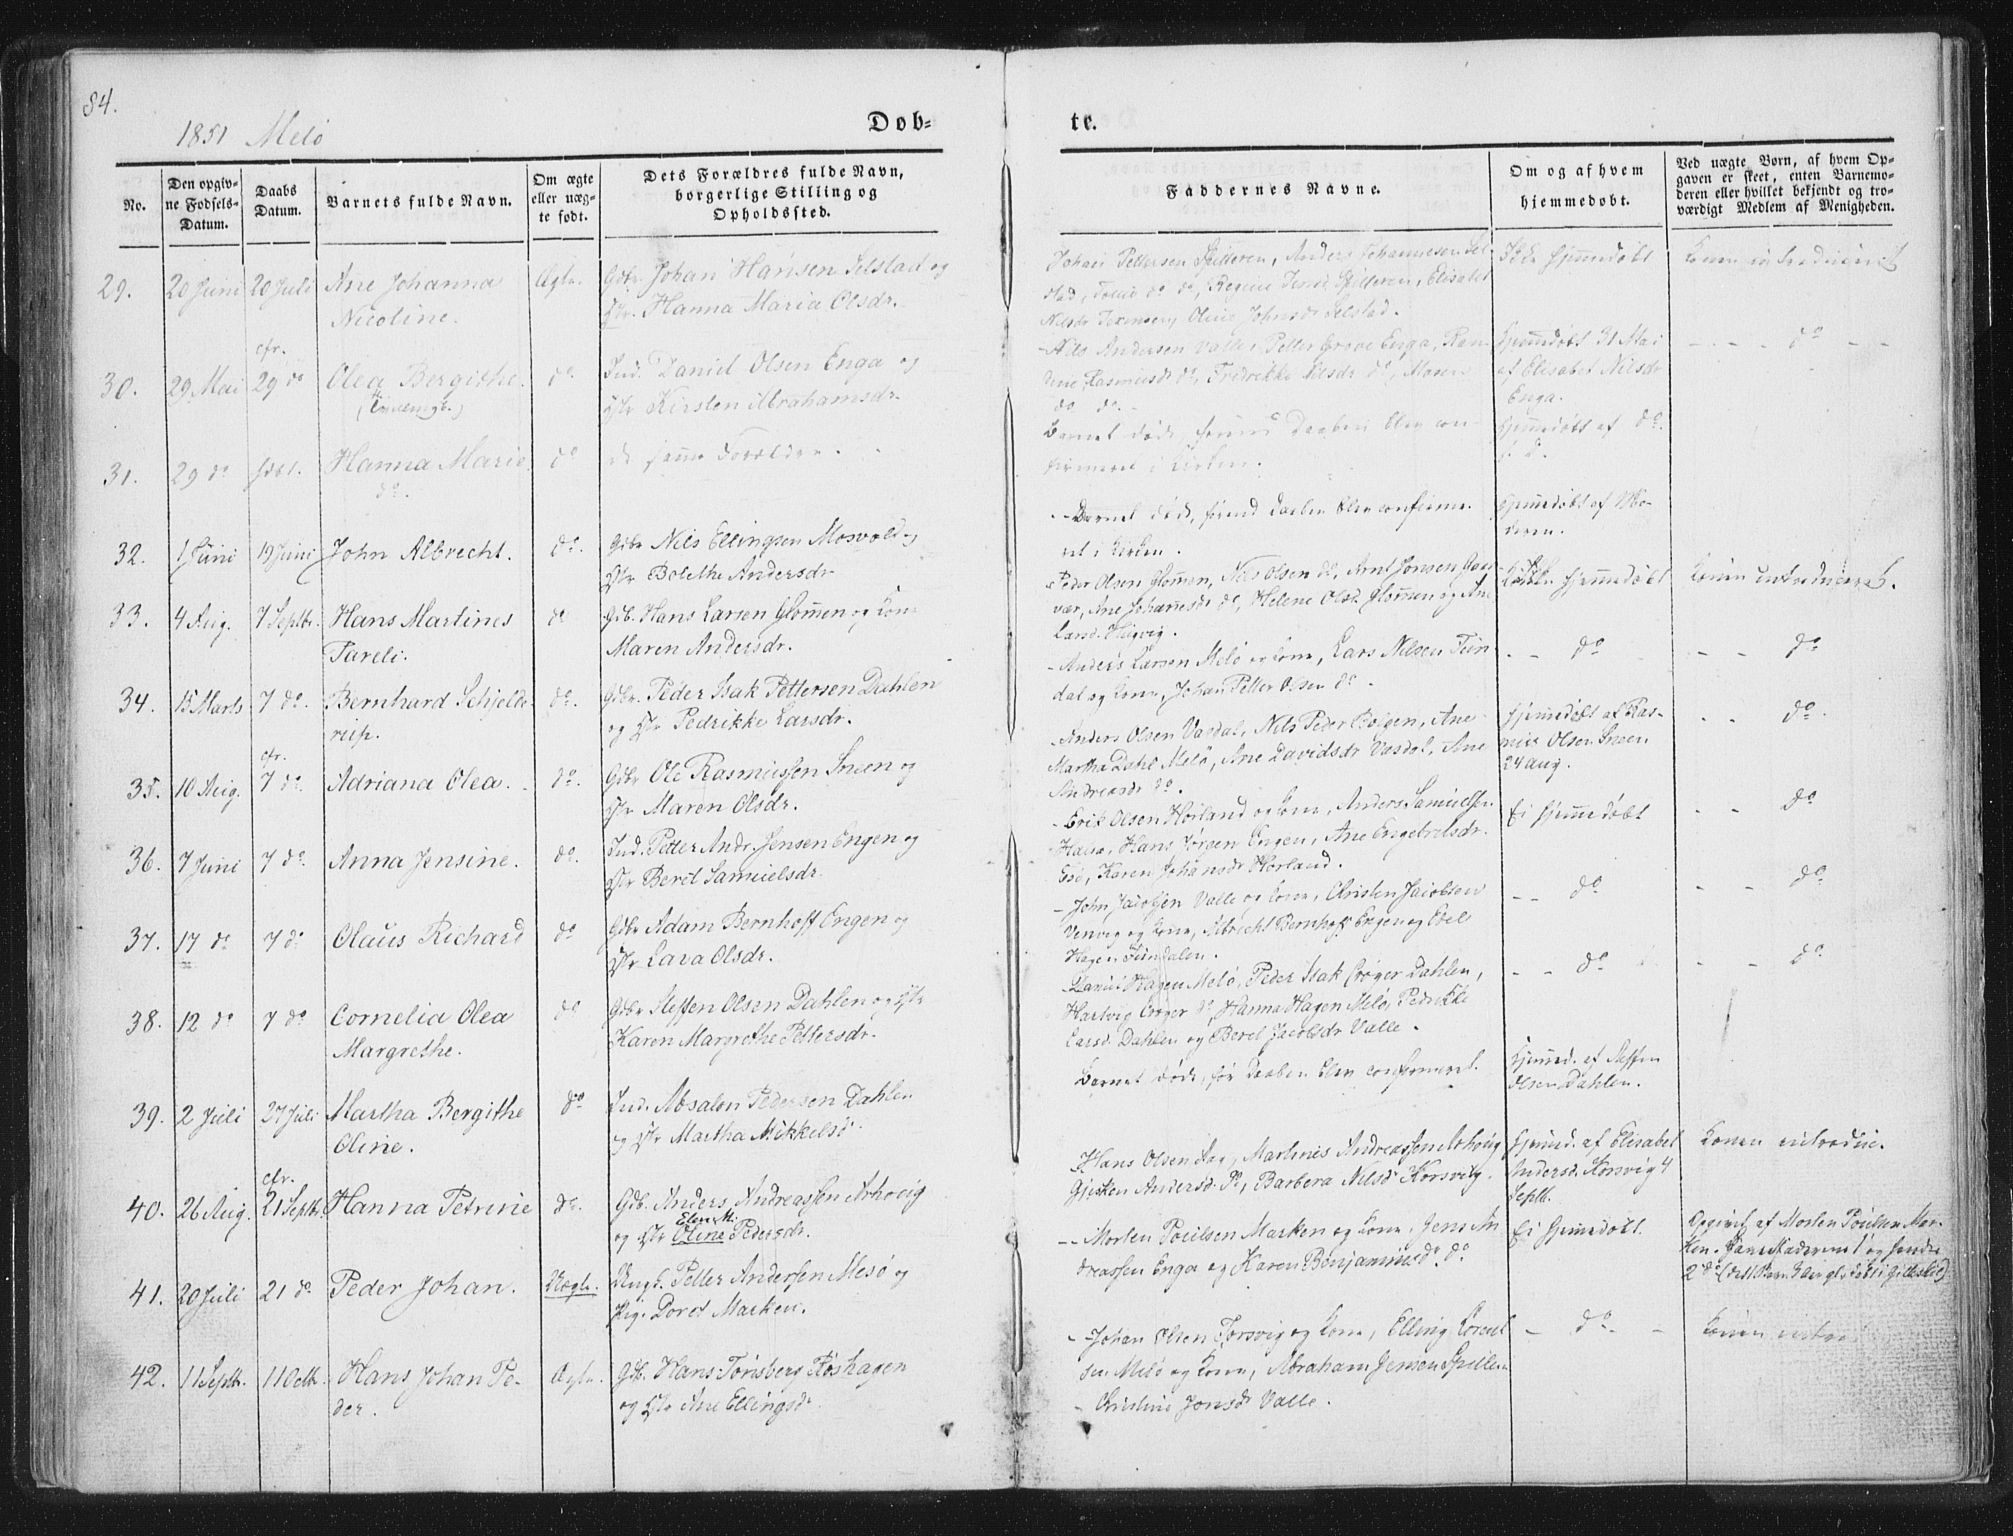 84.
1851 Melö
Dob-
te.
No.
Den opgiv-
ne Fodsels-
Datum.
Daabs
Datum.
Barnets fulde Navn.
Om ægte
eller næg-
te født.
Dets Forældres fulde Navn,
borgerlige Stilling og
Opholdssted.
Faddernes Navne.
Om og af hvem
hjemmedobt.
Ved uægte Born, af hvem Op-
gaven er skeet, enten Barnemo-
deren eller hvillet bekjendt og tro-
værdigt Medlem af Menigheden.
29. 20 Juni 20 Juli Ane Johanna Ægte. Gdbr. Johan Hansen Selstad og
Nicoline. Hanna Maria Olsdr.
Johan Pettersen Spilderen, Anders Johannesen Sel-
stad, do do, Regine Spilderen, Elisabet
Nilsdr Oline Johnsdr Selstad.
Ikke hjemmedøbt
Konen introduceret
cfr.
30. 29 Mai 29 do Olea Bergithe. do Ind. Daniel Olsen Enga og
(Tvillingb.) Kirsten Abrahamsdr.
Nils Andersen Valle, Petter Grove Enga,
Rasmusdr do, Fredrikke Nilsdr do, Maren
do do.
Hjemmedøbt 31 Mai
af Elisabet Nilsdr
Enga.
do
31. 29 do Hanna Marie do samme Forældre.
do.
Barnet døde, førend Daaben blev con-
firmeret i Kirken.
Hjemmedøbt af do.
32. 1 Juni 19 Juni John Albrecht. do. Gdbr Nils Ellingsen Mosvold og
Bolethe Andersdr
- Barnet døde, førend Daaben blev confirme-
ret i Kirken.
Hjemmedøbt af Mo-
deren.
33. 4 Aug. 7 Septbr. Hans Martines do Gdb. Hans Larsen Glommen og Kone
Tareli. Maren Andersdr.
- Peder Olsen Glommen, Nils Olsen do, Arnt Jonsen
vær, Ane Johannesdr do, Helene Olsd. Glommen og Ane
hjemmedøbt
Konen introduceret.
34. 15 Marts 7 do. Bernhard Schjelde- do. Gdbr. Peder Isak Pettersen Dahlen
rup. og Pedrikke Larsdr.
- Anders Larsen Melö og Kone, Lars Nilsen Fun-
dal og Kone, Johan Petter Olsen do -
- - do
- - do
cfr.
35. 10 Aug. 7 do. Adriana Olea. do. Gdbr Ole Rasmussen Sneen og
Maren Olsdr.
- Anders Olsen Vasdal, Nils Peder Ane
Martha Dahl Melö, Ane Davidsdr Vasdal, Ane
Andreasdr do.
Hjemmedøbt af Ras-
mus Olsen Sneen
24 aug.
- - do.
36. 7 Juni 7 do. Anna Jensine. do. Ind. Petter Andr. Jensen Engen og
Beret Samuelsdr.
- Erik Olsen Hørland og Kone, Anders Samuelsen
Hans Jørgen Engen, Ane Engebretsdr.
Karen Johansdr Hørland.
Ei hjemmedøbt
- - do
37. 17 do 7 do Olaus Richard do Gdbr Adam Bernhoff Engen og
Lava Olsdr.
- John Jacobsen Valle og Kone, Christen Jacobsen
Venveg og Kone, Albrecht Bernhoff Engen og
Hagen Fundalen.
-- do
- - do.
38. 12 do 7 do Cornelia Olea do Gdbr Steffen Olsen Dahlen og
Margrethe. Karen Margrethe Pettersdr.
Hagen Melö, Peder Isak Crøger Dahlen,
Hartvig Crøger do, Hanna Hagen Melö, Pedrikke
Larsd. Dahlen og Beret Jacobsdr Valle.
- - do
- - do.
39. 2 Juli 27 Juli Martha Bergithe do Ind. Absalon Pedersen Dahlen
Oline. og Martha Mikkelsd.
Barnet døde, før Daaben blev confirmeret.
Hjemmed. af Steffen
Olsen Dahlen.
cfr.
40. 26 Aug. 21 Septbr. Hanna Petrine do. Gdb. Anders Andreassen Arhovig
Elen M.
og Oline Pedersdr.
Hans Olsen Aag, Martines Andreassen Arhovig
Gjesken Andersd. do, Barbera Nilsdr Korsvig.
Hjemmd. af Elisabet
Andersd. Korsvig 4
Septb.
Konen introduc.
41. 20 Juli 21 do. Peder Johan. Uægte. Ungk. Petter Andersen Mesø og
Pig. Doret Marken.
- Morten Poulsen Marken og Kone, Jens An-
dreassen Enga og Karen Benjaminsdr do
Ei hjemmedøbt.
Opgivet af Morten Poulsen Mar-
ken.
42. 11 Septbr. 11 Octbr. Hans Johan Pe- Ægte. Gdb. Hans Tønsberg Røshagen
der. og Ane Ellingsdr
- Johan Olsen Torsvig og Kone, Elling Lorent-
sen Melö og Kone, Abraham Jensen
- Christine Jonsdr Valle.
- do -
Konen